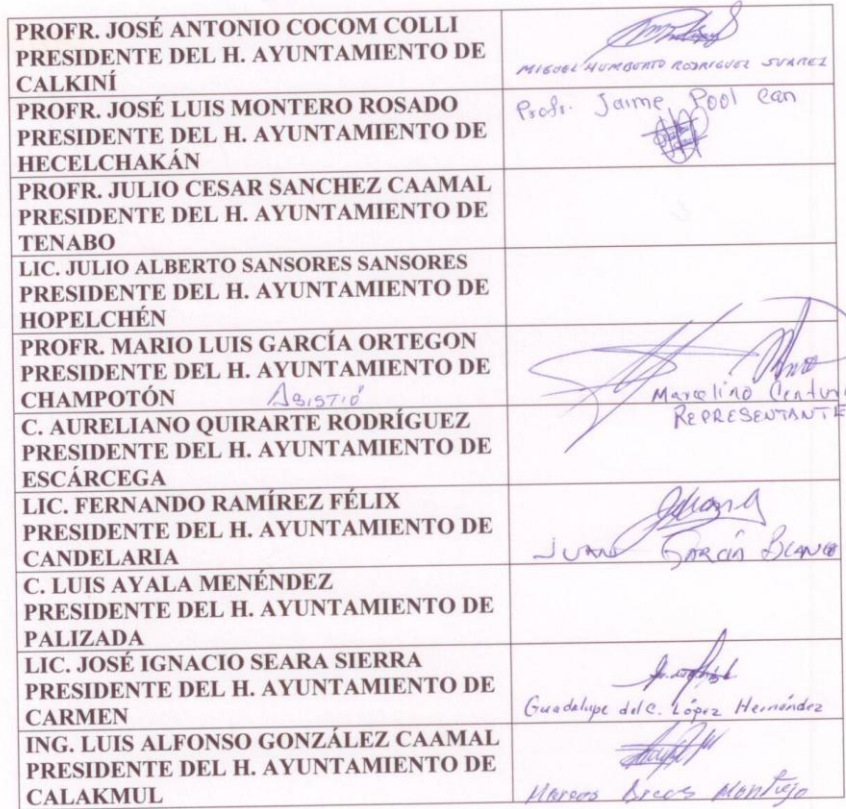 PROFR. JOSÉ ANTONIO COCOM COLLI
PRESIDENTE DEL H. AYUNTAMIENTO DE
CALKINÍ
MIGUEL HUMBERTO RODRIGUEZ SUAREZ
PROFR. JOSÉ LUIS MONTERO ROSADO
PRESIDENTE DEL H. AYUNTAMIENTO DE
HECELCHAKÁN
Profr. Jaime Pool Can
PROFR. JULIO CESAR SANCHEZ CAAMAL
PRESIDENTE DEL H. AYUNTAMIENTO DE
TENABO
LIC. JULIO ALBERTO SANSORES SANSORES
PRESIDENTE DEL H. AYUNTAMIENTO DE
HOPELCHÉN
PROFR. MARIO LUIS GARCÍA ORTEGON
PRESIDENTE DEL H. AYUNTAMIENTO DE
CHAMPOTÓN ASISTIÓ
Marcelino
REPRESENTANTE
C. AURELIANO QUIRARTE RODRÍGUEZ
PRESIDENTE DEL H. AYUNTAMIENTO DE
ESCÁRCEGA
LIC. FERNANDO RAMÍREZ FÉLIX
PRESIDENTE DEL H. AYUNTAMIENTO DE
CANDELARIA
JUAN GARCIA BLANCO
C. LUIS AYALA MENÉNDEZ
PRESIDENTE DEL H. AYUNTAMIENTO DE
PALIZADA
LIC. JOSÉ IGNACIO SEARA SIERRA
PRESIDENTE DEL H. AYUNTAMIENTO DE
CARMEN
Guadalupe del C. López Hernández
ING. LUIS ALFONSO GONZÁLEZ CAAMAL
PRESIDENTE DEL H. AYUNTAMIENTO DE
CALAKMUL
Marcos Montejo